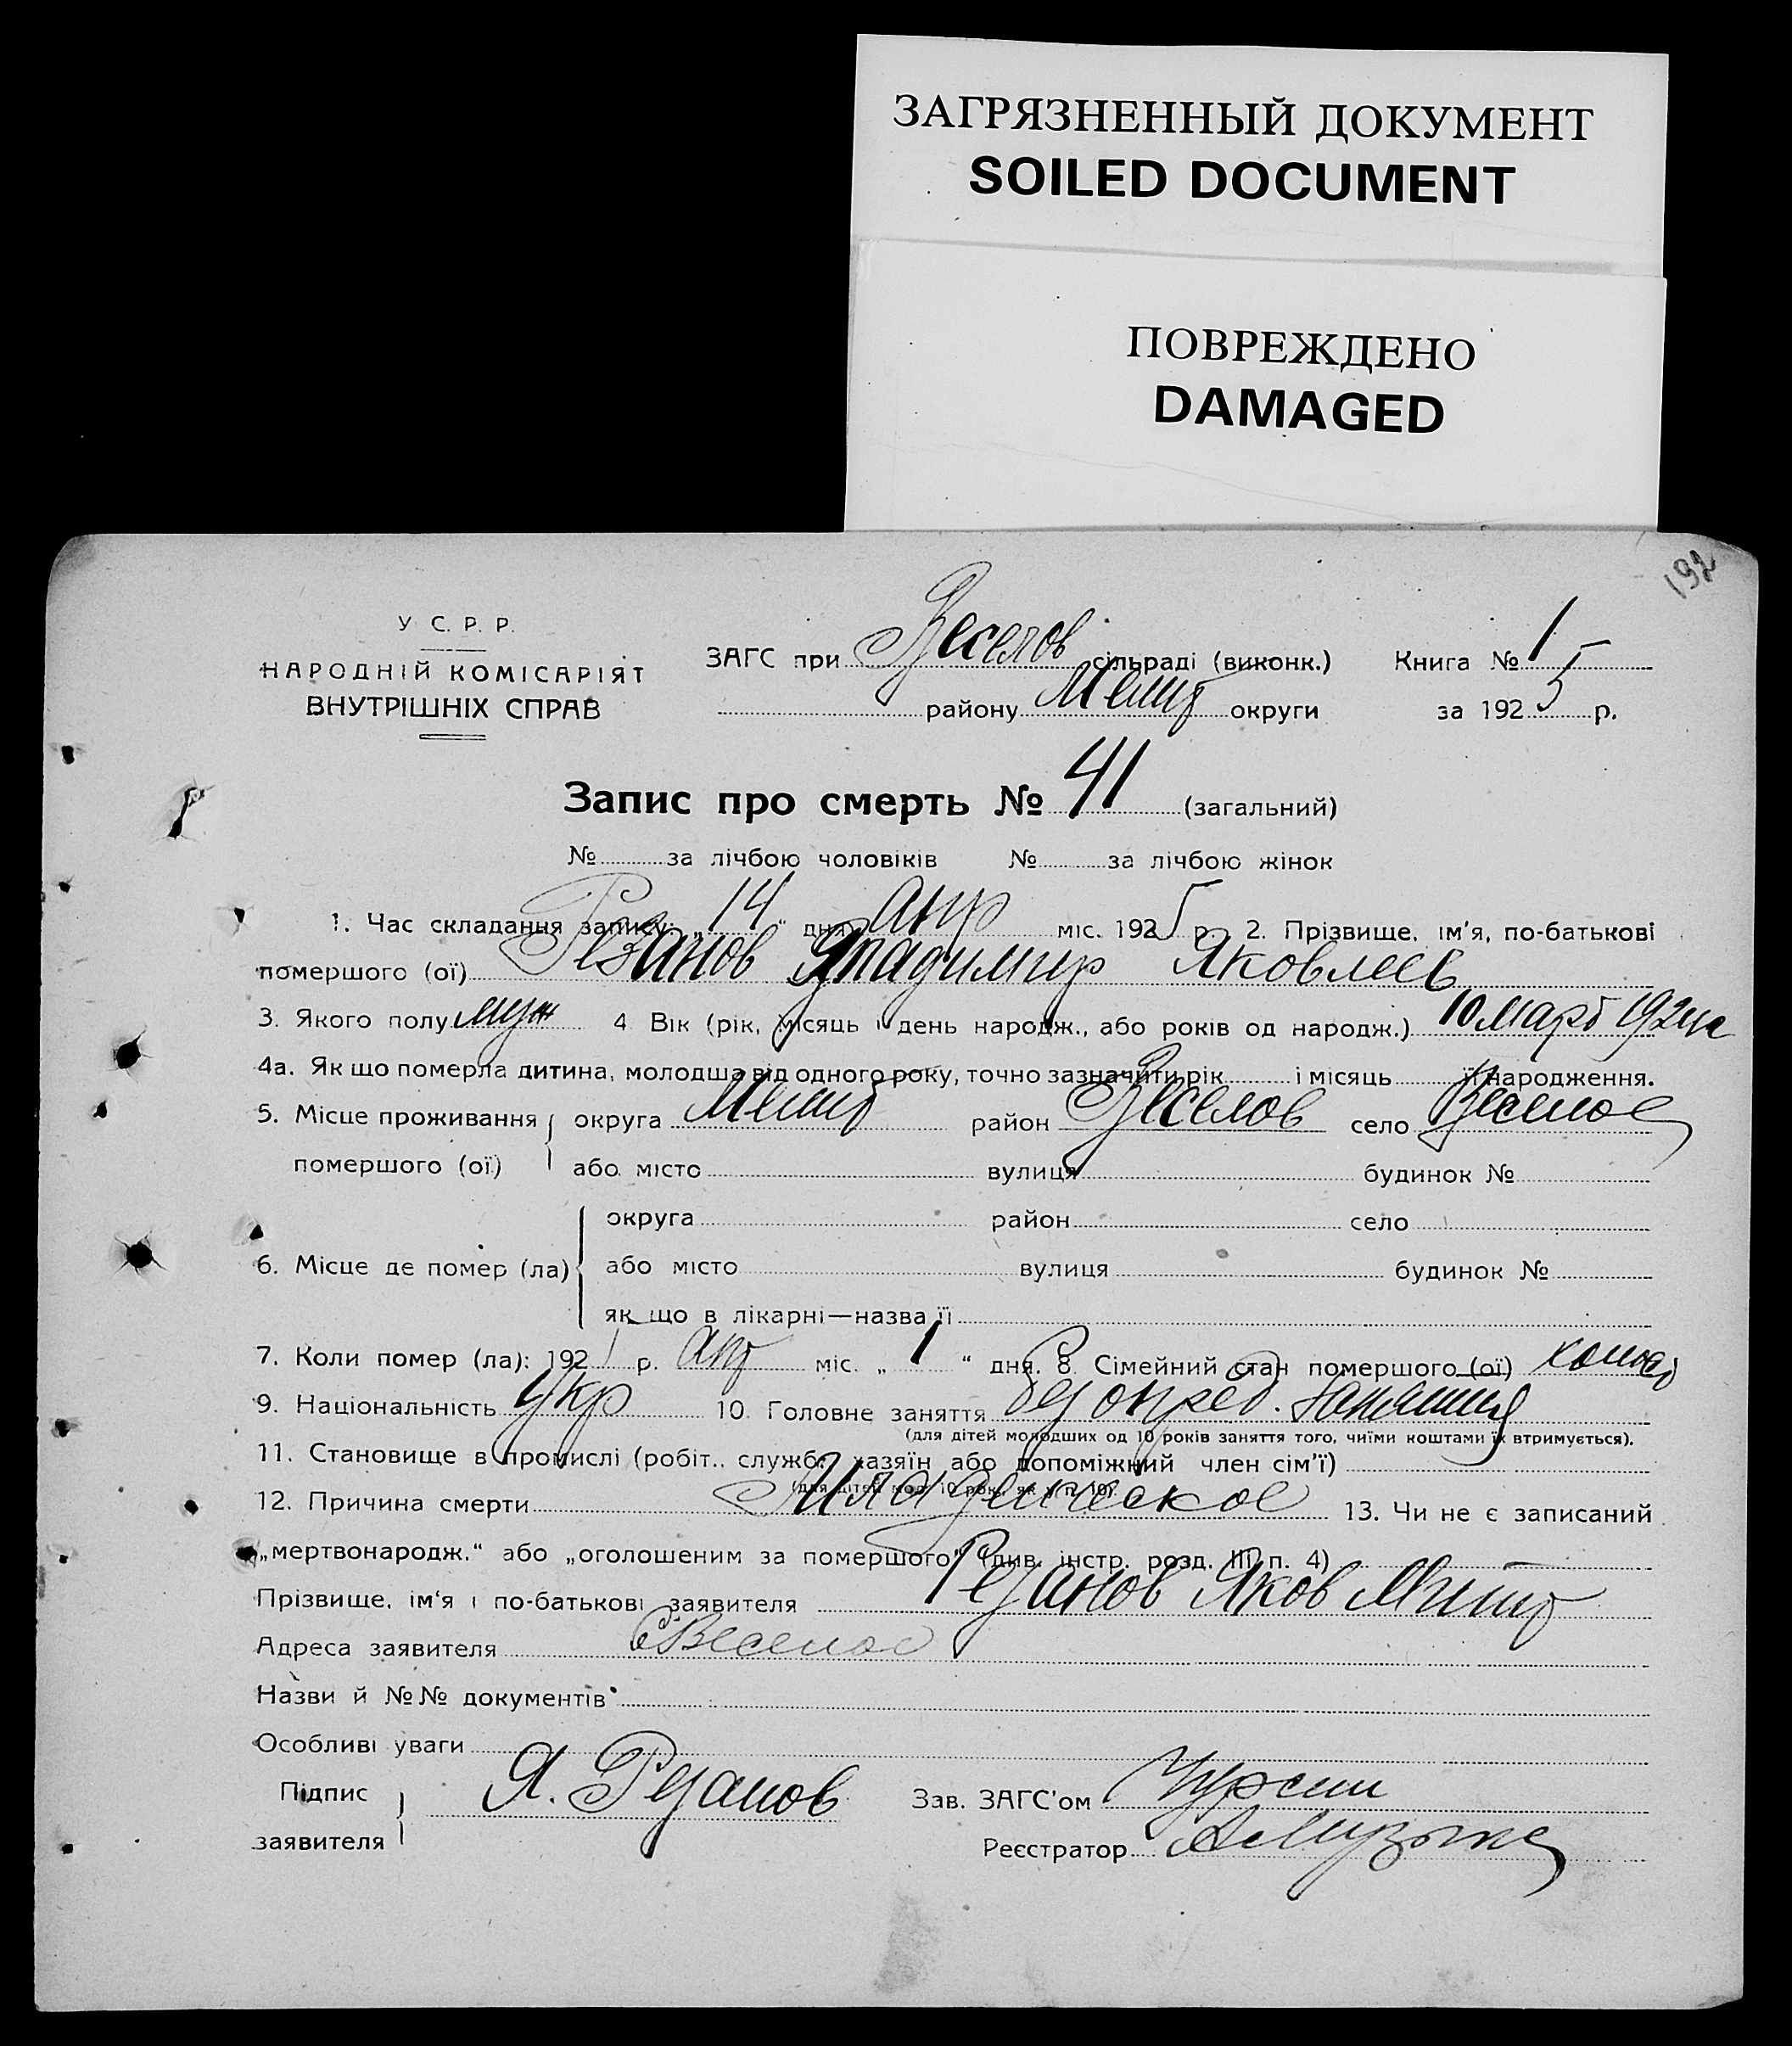 ЗАГРЯЗНЕННЫЙ ДОКУМЕНТ
SOILED DOCUMENT
ПОВРЕЖДЕНО
DAMAGED
192
У С. Р. Р.
НАРОДНІЙ КОМІСАРІЯТ
ВНУТРІШНІХ СПРАВ
ЗАГС при Веселов сільраді (виконк.) Книга № 1
району Мелит округи за 1925 р.
Запис про смерть № 41 (загальний)
№ за лічбою чоловіків № за лічбою жінок
1. Час складання запису: „14“ дня апр міс. 1925 р. 2. Прізвище, ім'я, по-батькові
помершого (ої) Резанов Владимир Яковлев
3. Якого полу муж 4. Вік (рік, місяць і день народж., або років од народж.) 10 март 192
4а. Як що померла дитина, молодша від одного року, точно зазначити рік і місяць її народження.
5. Місце проживання округа Мелит район Веселов село Веселое
помершого (ої) або місто вулиця будинок №
округа район село
6. Місце де помер (ла) або місто вулиця будинок №
як що в лікарні—назва її
7. Коли помер (ла): 192 р. апр міс. „1“ дня. 8. Сімейний стан помершого (ої) холос
9. Національність Укр 10. Головне заняття без опред. занятия
(для дітей молодших од 10 років заняття того, чиїми коштами їх втримується).
11. Становище в промислі (робіт., служб., хазяїн або допоміжний член сім'ї)
(для дітей мол. 10 рок. як у п. 10).
12. Причина смерти Младенческое 13. Чи не є записаний
„мертвонародж.“ або „оголошеним за помершого“ (див. інстр. розд. III п. 4)
Прізвище, ім'я і по-батькові заявителя Резанов Яков Митр
Адреса заявителя с Веселое
Назви й №№ документів
Особливі уваги
Підпис Я. Резанов Зав. ЗАГС'ом Чурсин
заявителя Реєстратор А Музыка